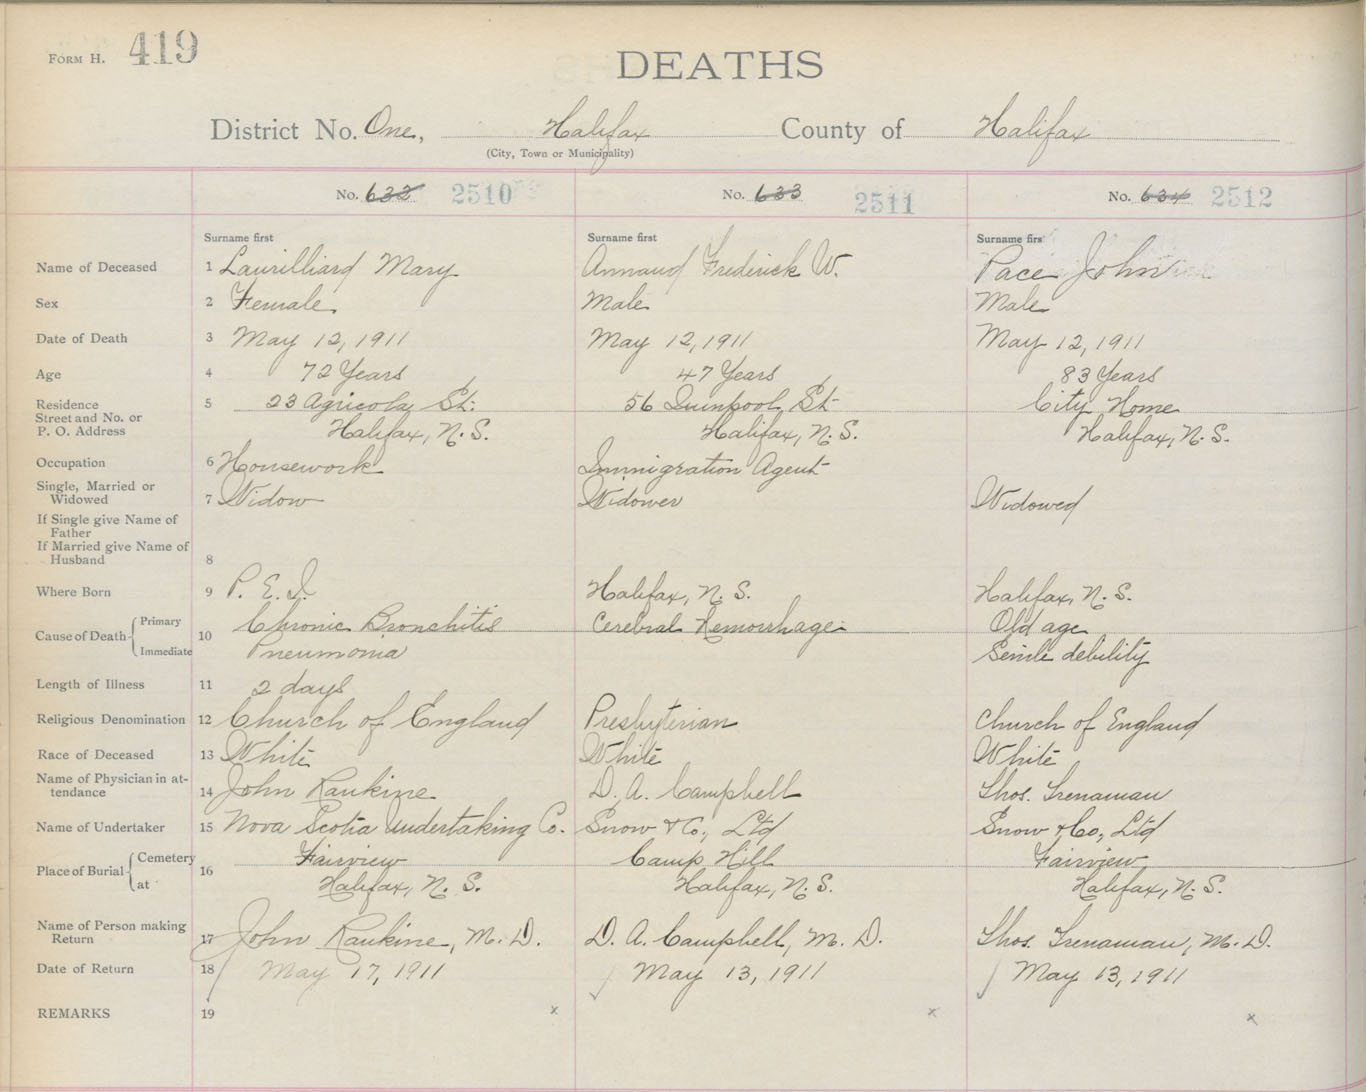 FORM H. 419
DEATHS
District No. One, Halifax County of Halifax
(City, Town or Municipality)
No. 633 2510 No. 633 2511 No. 634 2512
Surname first Surname first Surname firs
Name of Deceased 1 Laurilliard Mary Annand Frederick W. Pace John
Sex 2 Female Male Male
Date of Death 3 May 12, 1911 May 12, 1911 May 12, 1911
Age 4 72 Years 47 Years 83 Years
Residence 5 23 Agricola St: 56 Quinpool St City Home
Street and No. or
P. O. Address Halifax, N. S. Halifax, N. S. Halifax, N. S.
Occupation 6 Housework Immigration Agent
Single, Married or
Widowed 7 Widow Widower Widowed
If Single give Name of
Father
If Married give Name of
Husband 8
Where Born 9 P. E. I. Halifax, N. S. Halifax, N. S.
Cause of Death Primary 10 Chronic Bronchitis Cerebral Hemorrhage Old age
Immediate Pneumonia Senile debility
Length of Illness 11 2 days
Religious Denomination 12 Church of England Presbyterian Church of England
Race of Deceased 13 White White White
Name of Physician in at-
tendance 14 John Rankine D. A. Campbell Thos. Trenaman
Name of Undertaker 15 Nova Scotia Undertaking Co. Snow & Co., Ltd Snow & Co., Ltd
Place of Burial Cemetery 16 Fairview Camp Hill Fairview
at Halifax, N. S. Halifax, N. S. Halifax, N. S.
Name of Person making
Return 17 John Rankine, M. D. D. A. Campbell, M. D. Thos. Trenaman, M. D.
Date of Return 18 May 17, 1911 May 13, 1911 May 13, 1911
REMARKS 19 x x x